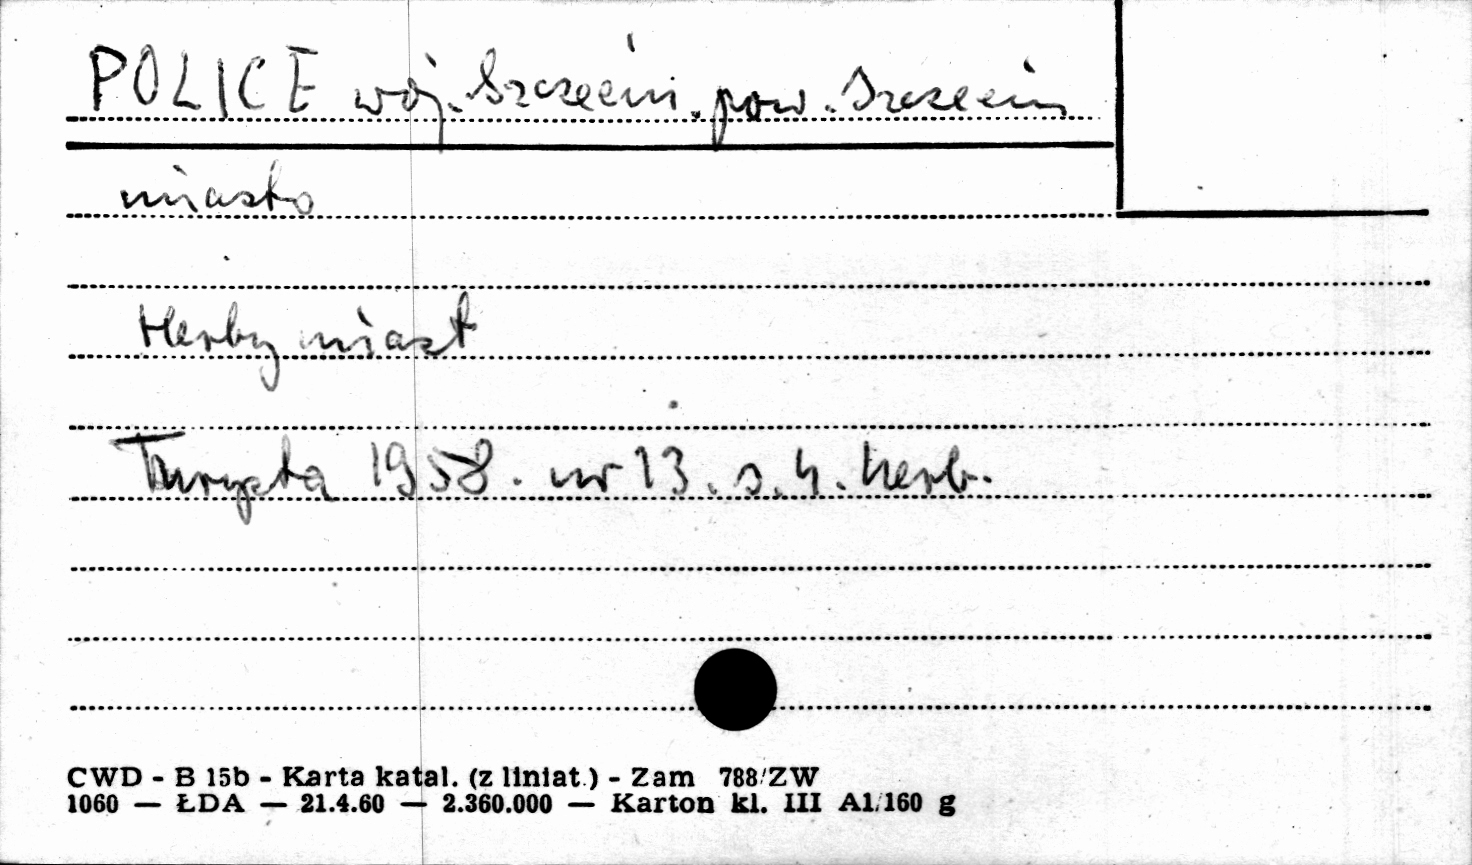 POLICE woj. Szczecin. pow. Szczecin
miasto
Herby miast
Turysta 1958. nr 13. s. 4. herb.
CWD - B 15b - Karta katal. (z liniat.) - Zam 788/ZW
1060 — ŁDA — 21.4.60 — 2.360.000 — Karton kl. III A1/160 g